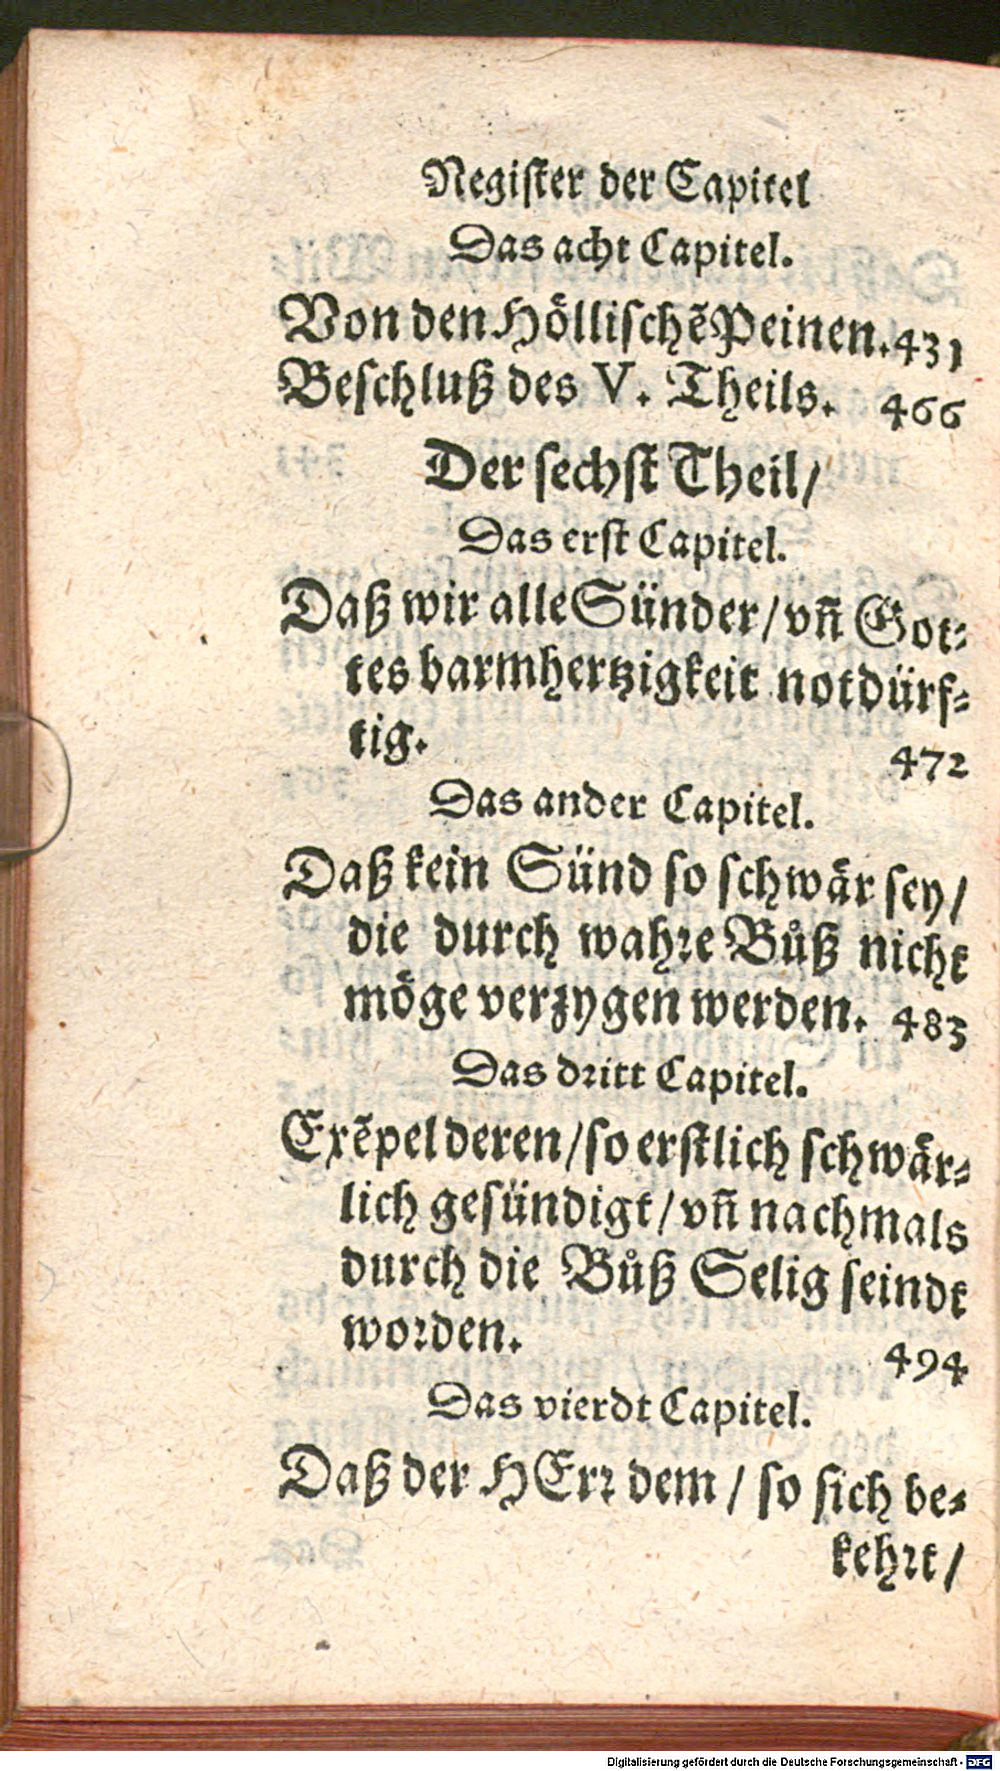 Register der Capitel
Das acht Capitel.
Von den Höllischẽ Peinen. 431
Beschluß des V. Theils. 466
Der sechst Theil/
Das erst Capitel.
Daß wir alle Sünder/ vñ Got-
tes barmhertzigkeit notdürf-
tig. 472
Das ander Capitel.
Daß kein Sünd so schwär sey/
die durch wahre Bůß nicht
möge verzygen werden. 483
Das dritt Capitel.
Exẽpel deren/ so erstlich schwär-
lich gesündigt/ vñ nachmals
durch die Bůß Selig seindt
worden. 494
Das vierdt Capitel.
Daß der HErr dem/ so sich be-
kehrt/
Digitalisierung gefördert durch die Deutsche Forschungsgemeinschaft - DFG